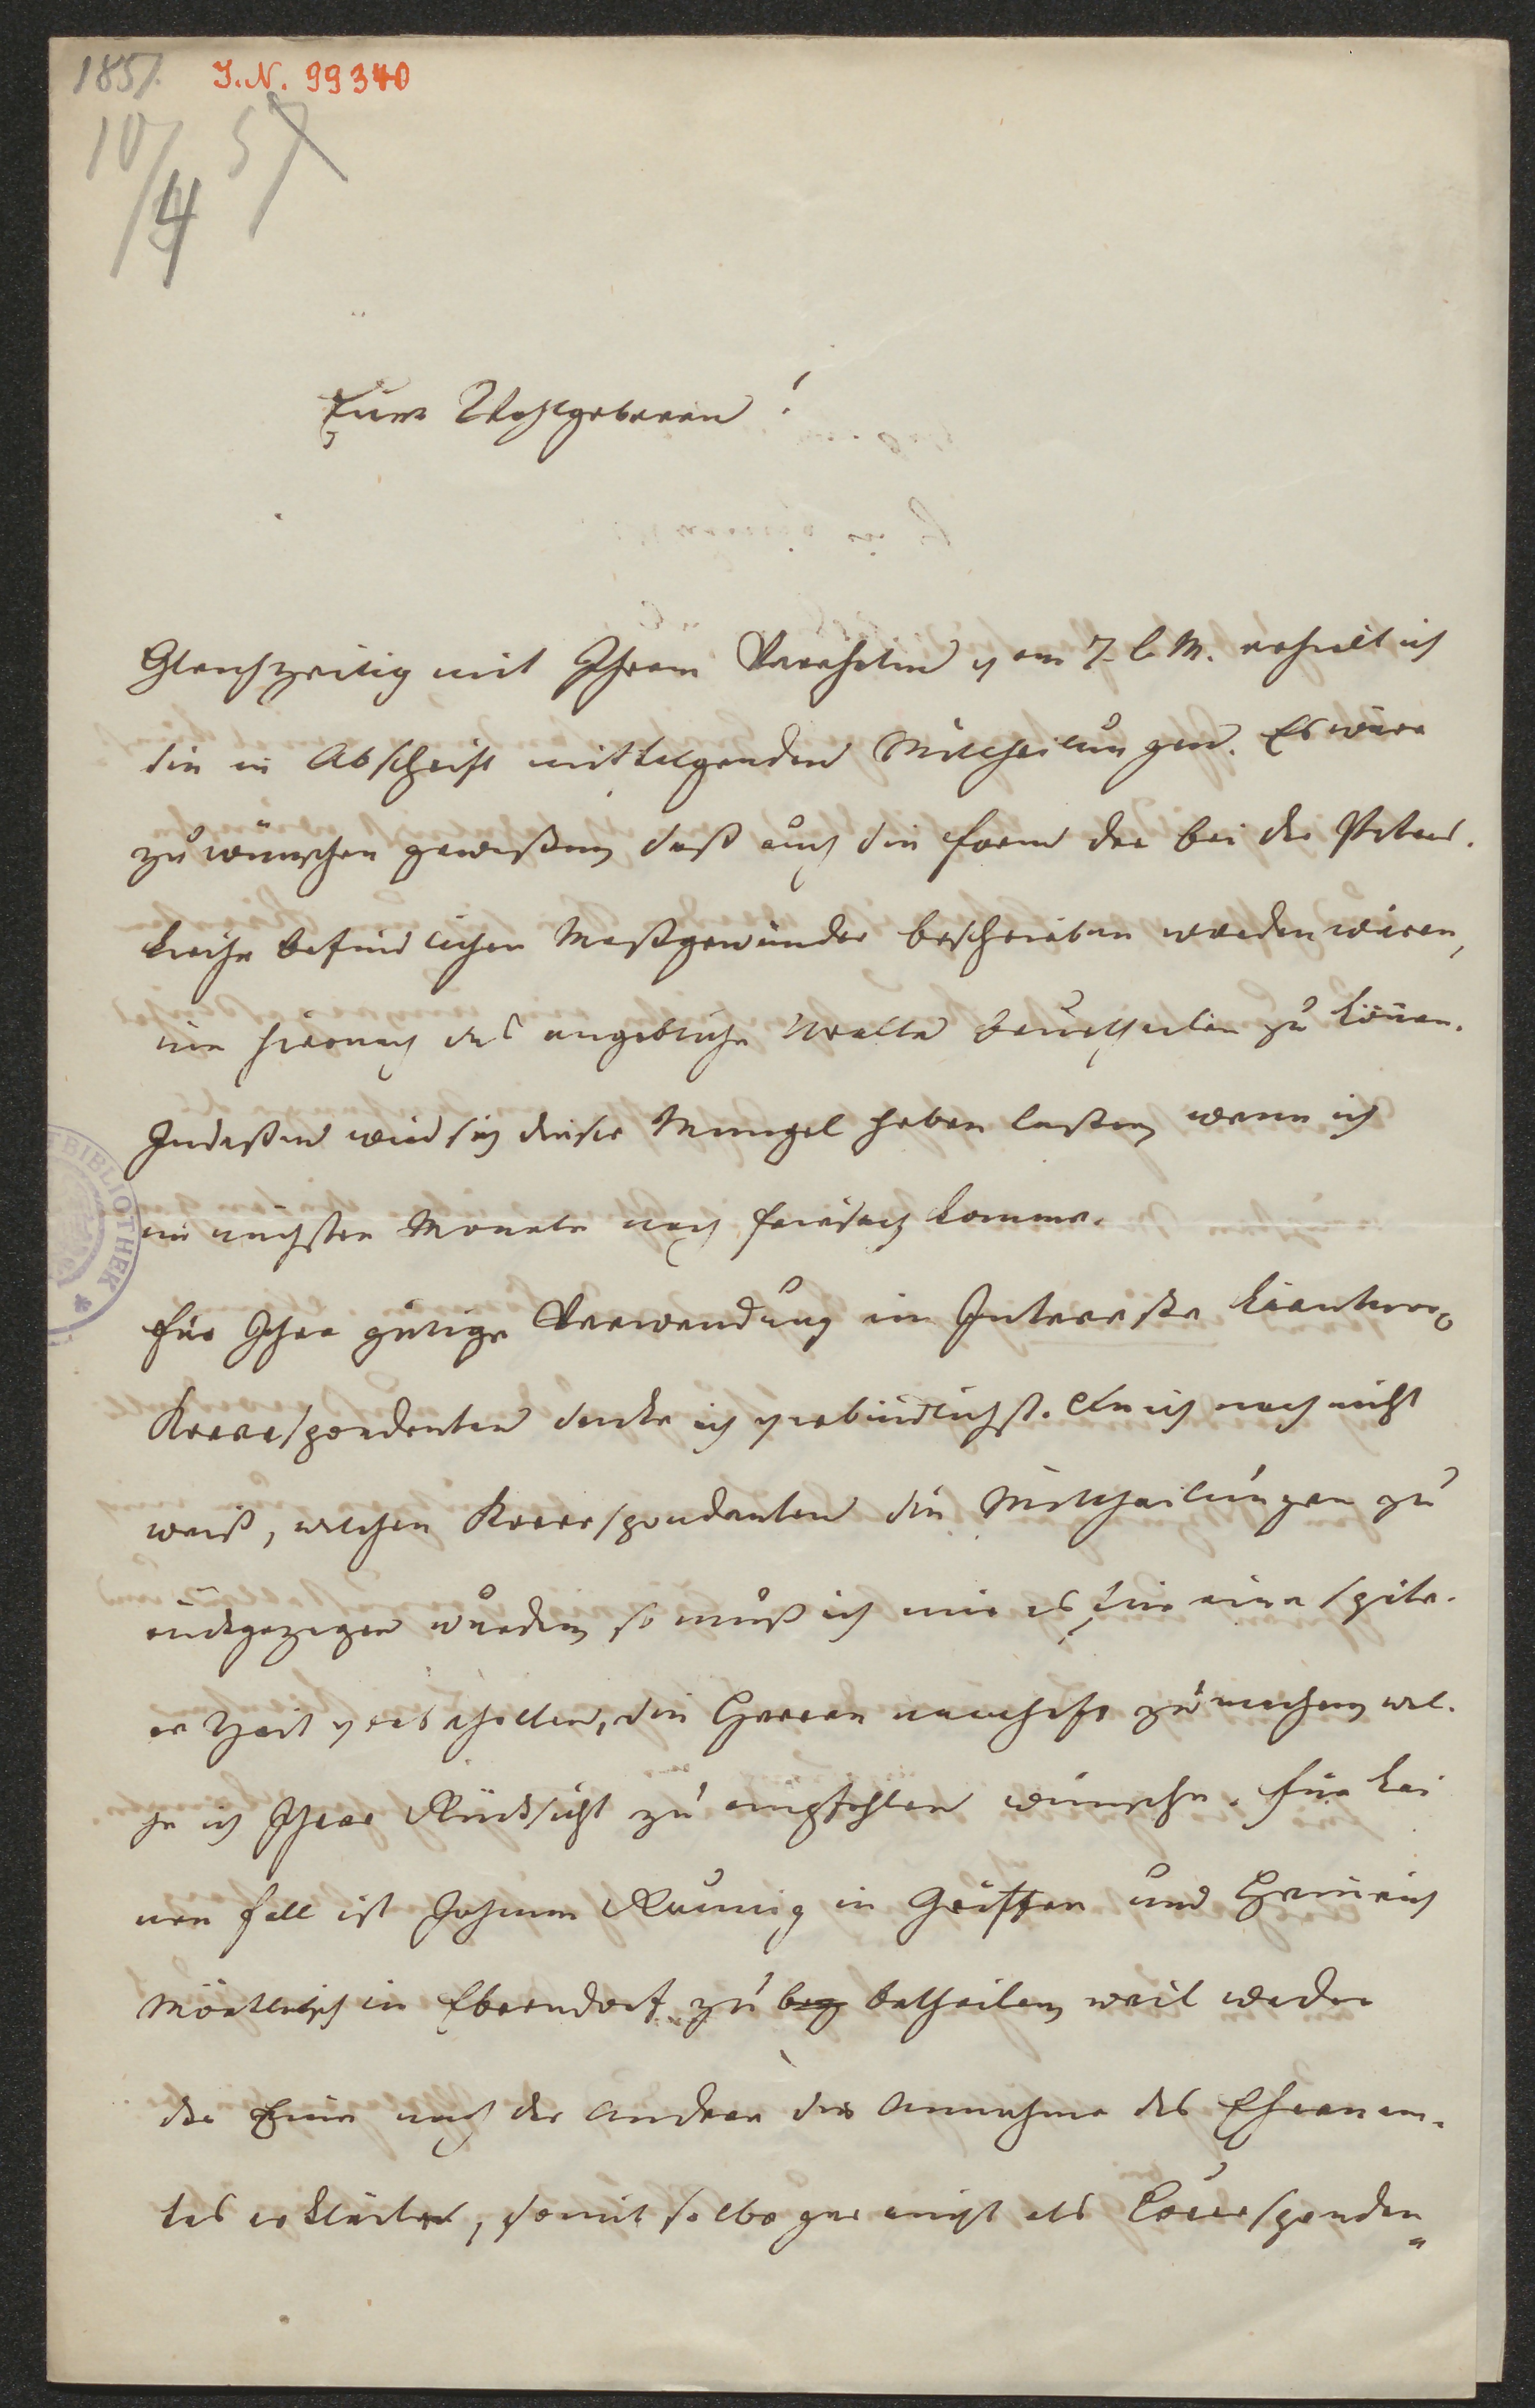 1857. I.N. 99340
10/4 57
Eure Wohlgeboren!
Gleichzeitig mit Ihrem Verehrten vom 7. l. M. erhielt ich
die in Abschrift mitfolgenden Mittheilungen. Es wäre
zu wünschen gewesen, daß auch die Form der bei der Peters-
kirche befindlichen Meßgewänder beschrieben worden wären,
um hiernach das angebliche Uralte beurtheilen zu können.
Indessen wird sich dieser Mangel heben lassen, wenn ich
im nächsten Monate nach Friesach komme.
Für Ihre gütige Verwendung im Interesse
Korrespondenten danke ich verbindlichst. Da ich noch nicht
weiß, welchen Korrespondenten die Mittheilungen zu
rückgezogen wurden, so muß ich mir es für eine späte-
re Zeit vorbehalten, die Herren namhaft zu machen, wel-
che ich Ihrer Rücksicht zu empfehlen wünsche. Für kei
nen Fall ist Johann Raunig in Griffen und Heinrich
in Eberndorf zu betheilen, weil weder
der Eine noch der Andere die Annahme des Ehrenam-
tes erklärte, somit selbe gar nicht als Corresponden=
BIBLIOTHEK